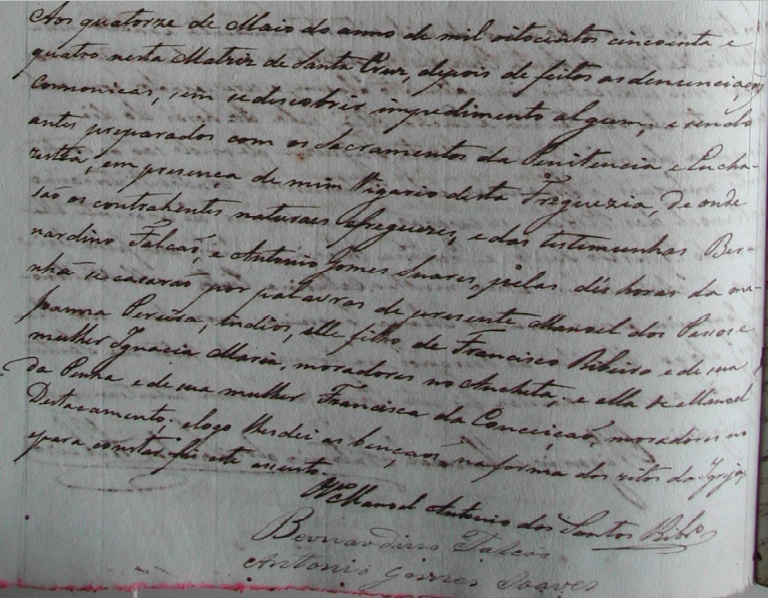 Aos quatorze de Maio do anno de mil oitocentos cincoenta e
quatro nesta Matriz de Santa Cruz, depois de feitos as denunciações
canonicas, sem se descobrir impedimento algum, e sendo
antes preparados com os Sacramentos da Penitencia e Eucha-
ristia, em presença de mim Vigario desta Freguezia, de onde
são os contrahentes naturaes e freguezes, e das testemunhas Ber-
nardino Falcão, e Antonio Gomes Suares, pelas dés horas da ma-
nhã se casarão por palavras de presente Manoel dos Passos e
Pereira, Indios, elle filho de Francisco Ribeiro e de sua
mulher Ignacia Maria, moradores no e ella de Manoel
da Penha e de sua mulher Francisca da Conceiçaõ, moradores no
Destacamento; e logo lhes dei as bençaõs na forma dos ritos da Igreja,
e para constar fiz este assento.
Manoel Antonio dos Santos Ribro
Bernardino Falcão
Antonio Gomes Soares